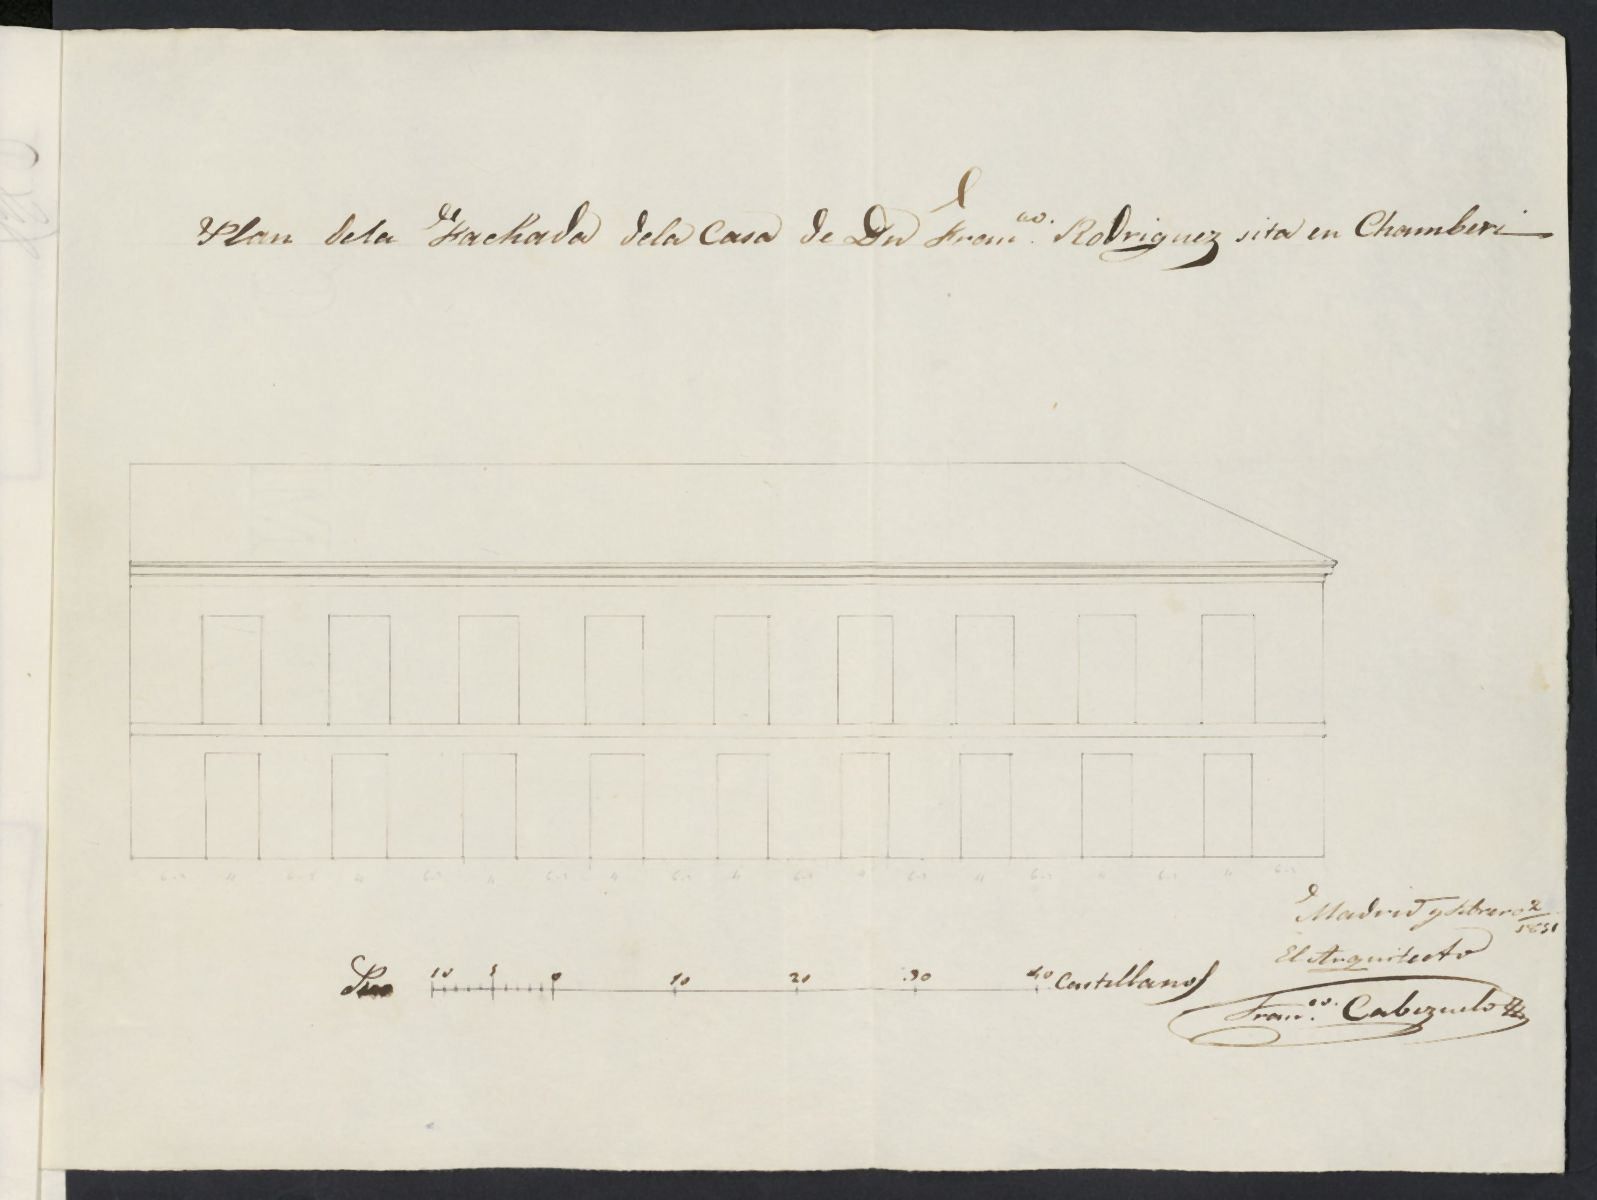 Plan de la Fachada dela Casa de Dn Franco. Rodriguez sita en Chamberi
Madrid y Febrero 2
1851
El Arquitecto
Pies 10 5 0 10 20 30 40 Castellanos
Franco. Cabezuelo